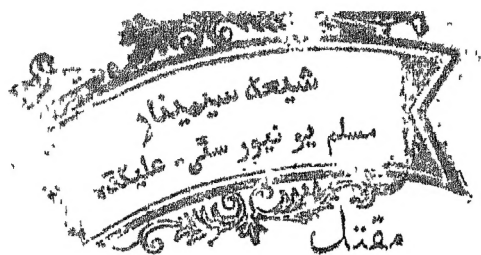 شیعہ سیمینار
مسلم یو نیور سٹی۔ علیگڑھ
مقتل